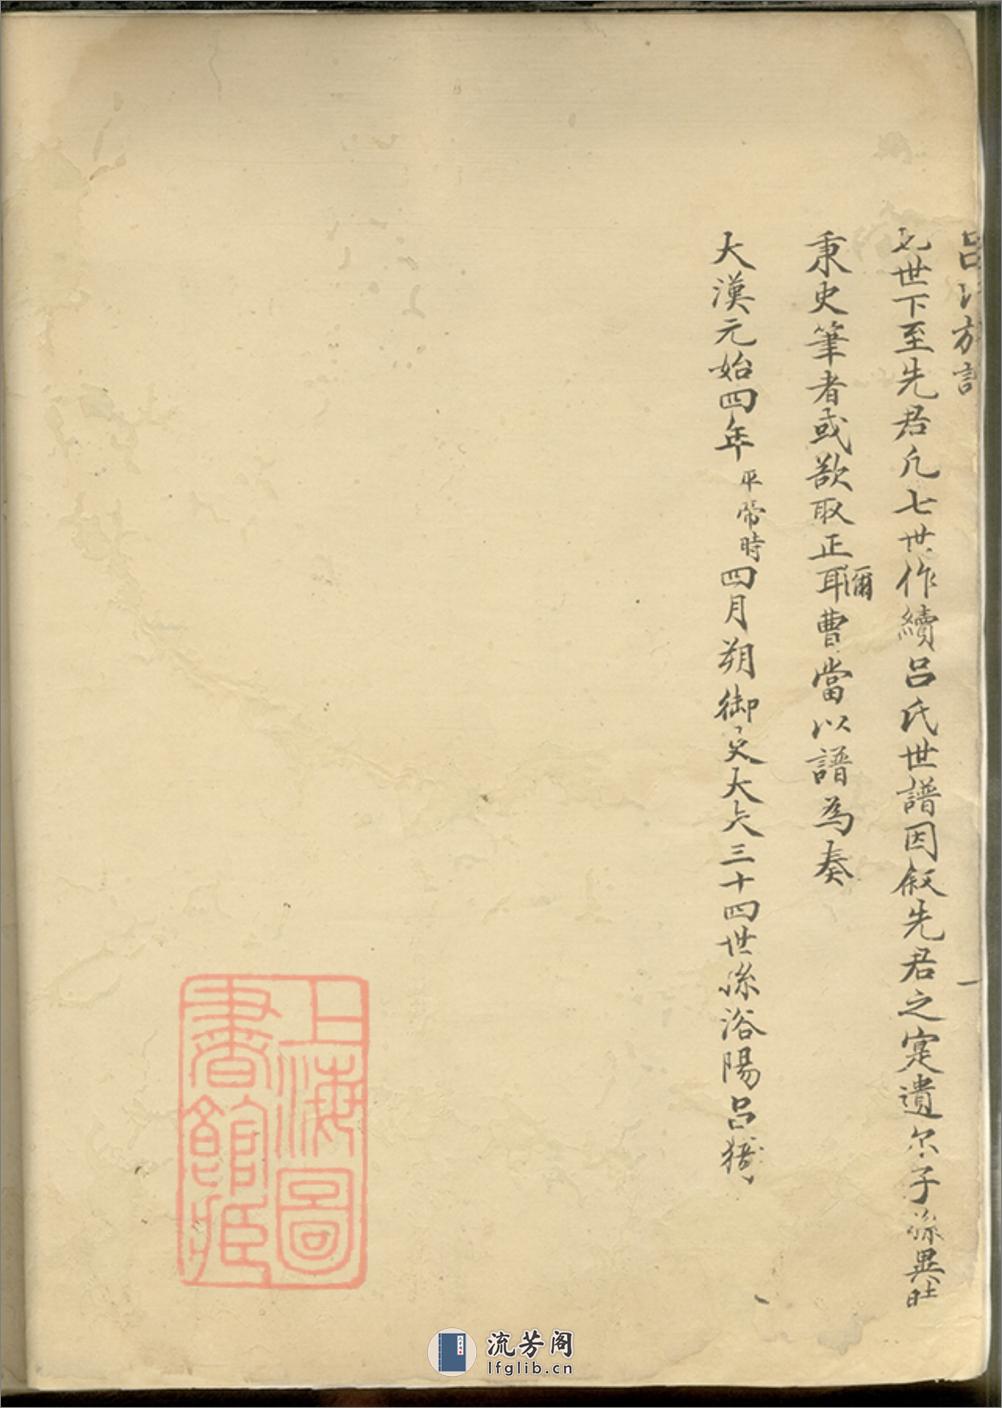 呂氏族譜
一
九世下至先君凡七世作續呂氏世譜因叙先君之寔遺尔子孫異旹
秉史筆者或欲取正耳彌曹當以譜為奏
大漢元始四年平帝時四月朔御史大夫三十四世孫洛陽呂獄
上海圖
書館藏
流芳阁
lfglib.cn